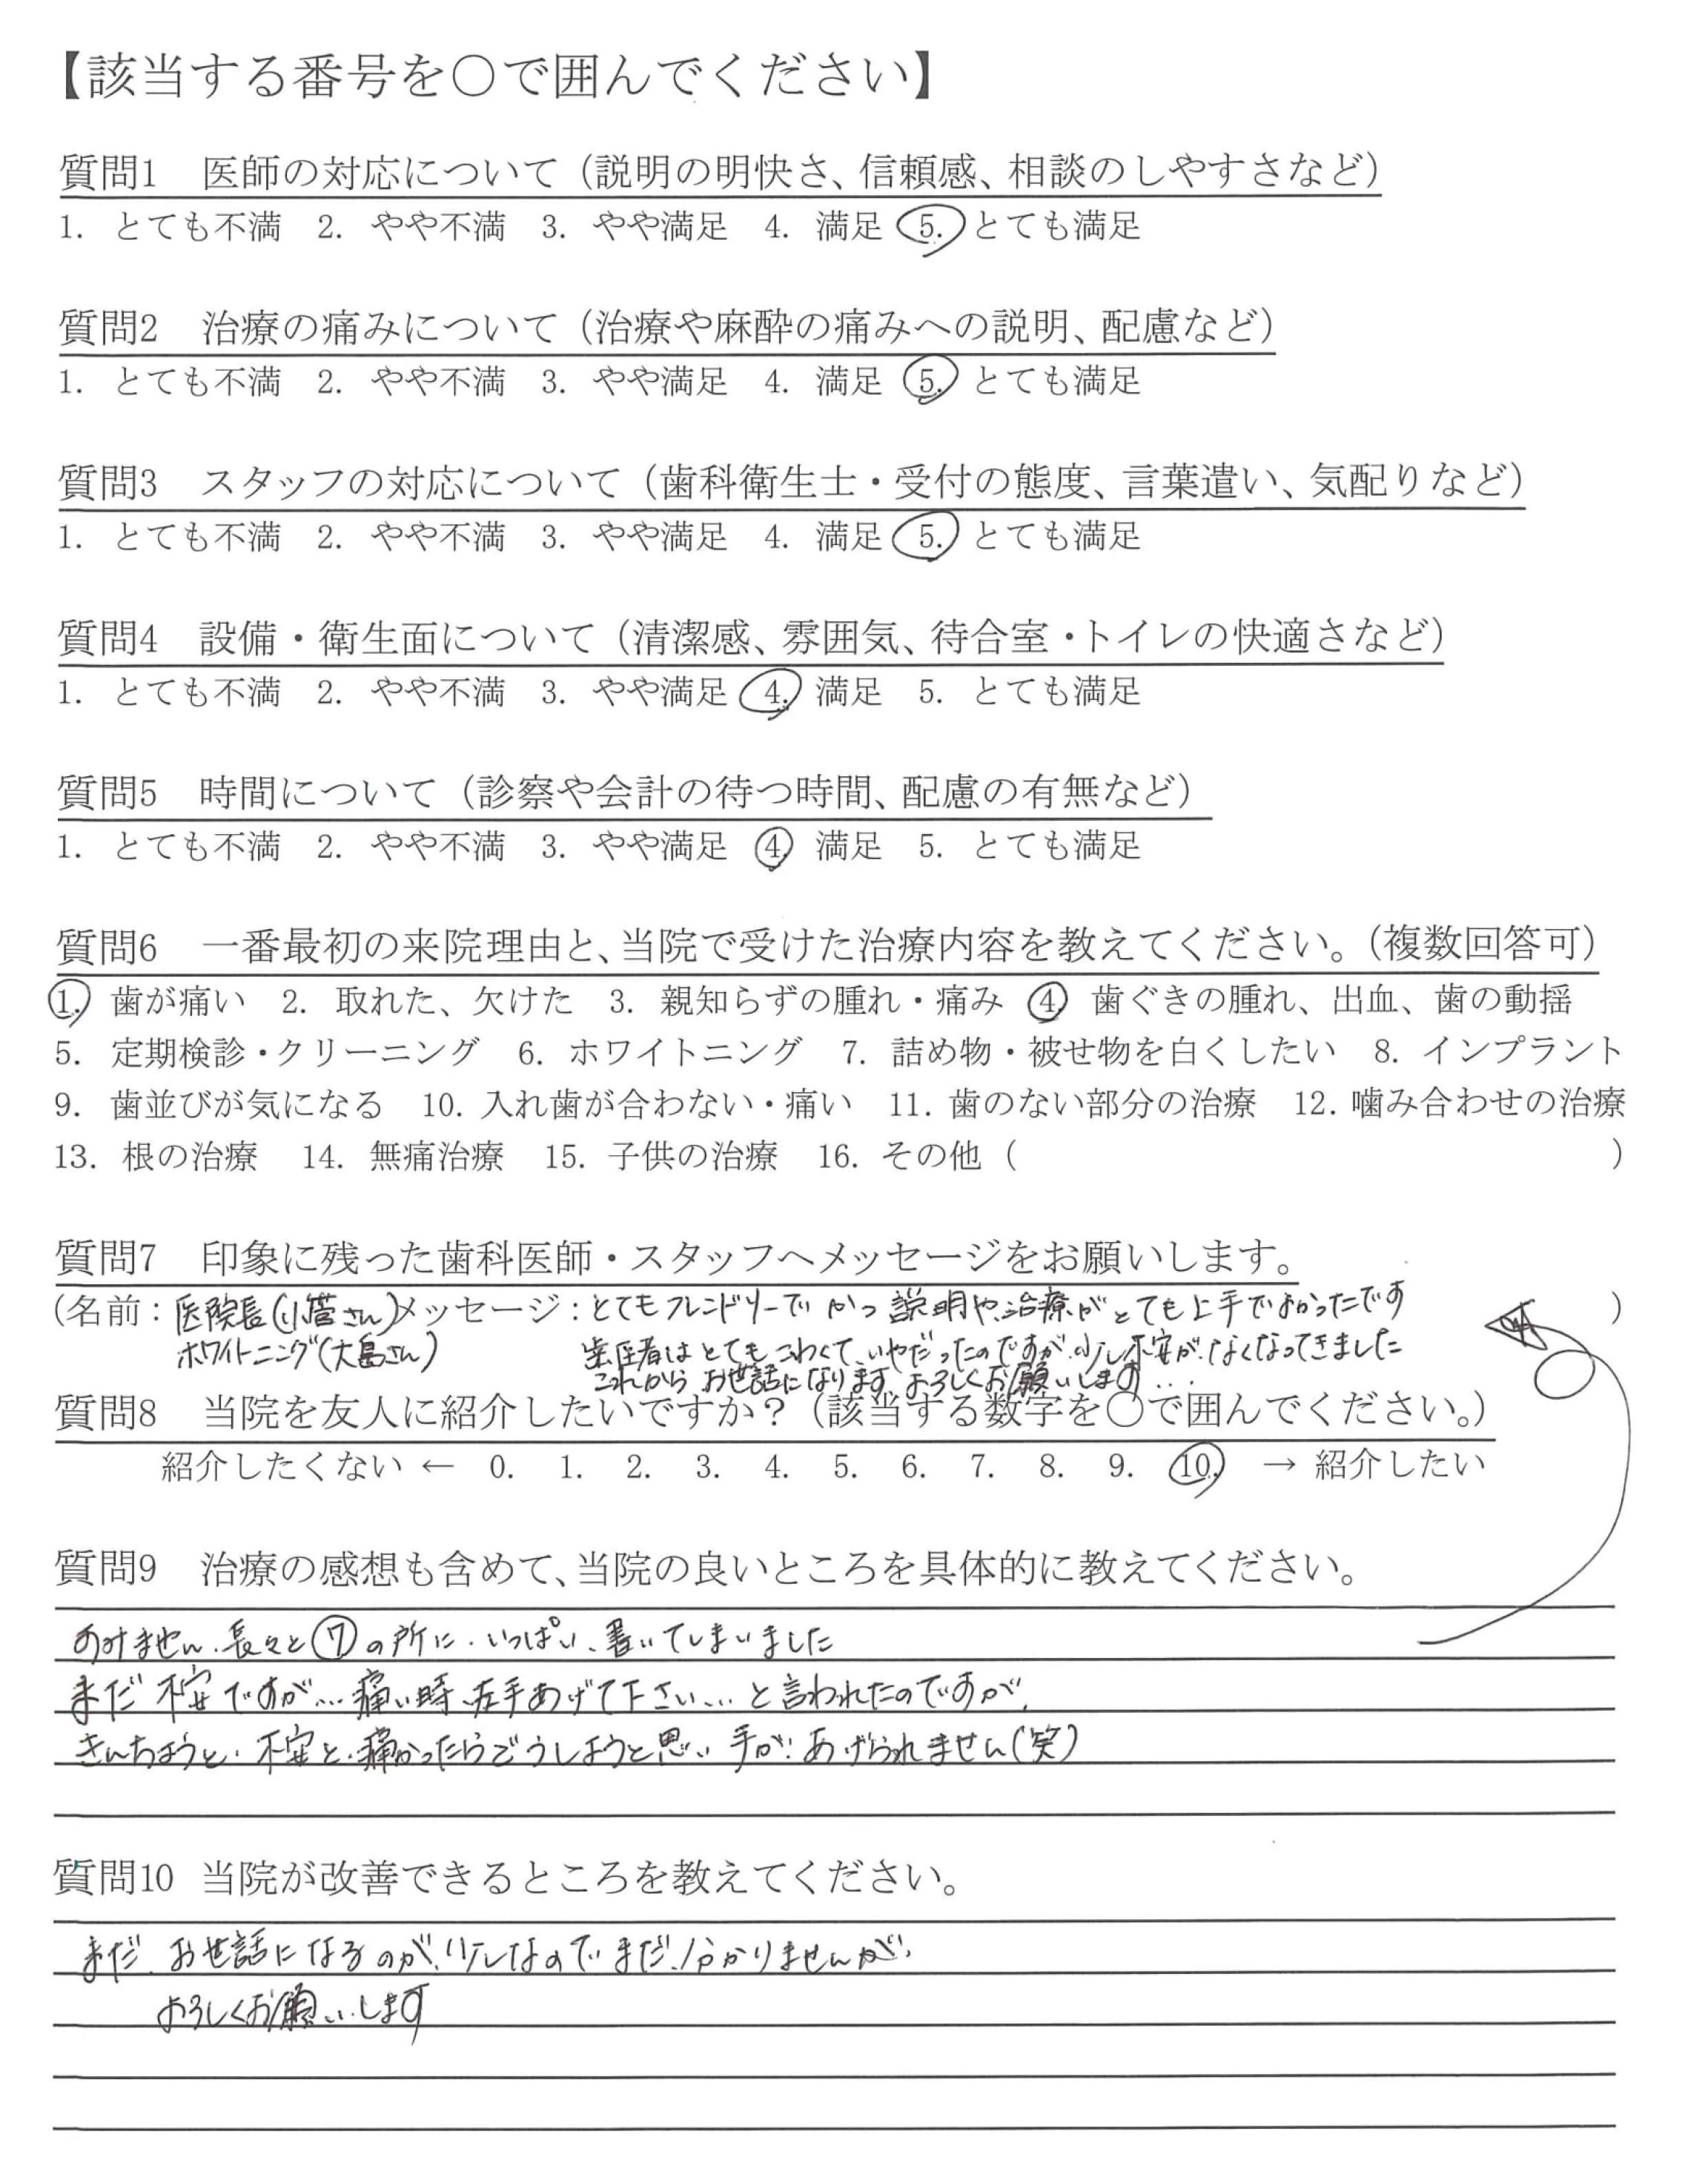 【該当する番号を○で囲んでください】
質問1 医師の対応について（説明の明快さ、信頼感、相談のしやすさなど）
1. とても不満 2. やや不満 3. やや満足 4. 満足 5. とても満足
質問2 治療の痛みについて（治療や麻酔の痛みへの説明、配慮など）
1. とても不満 2. やや不満 3. やや満足 4. 満足 5. とても満足
質問3 スタッフの対応について（歯科衛生士・受付の態度、言葉遣い、気配りなど）
1. とても不満 2. やや不満 3. やや満足 4. 満足 5. とても満足
質問4 設備・衛生面について（清潔感、雰囲気、待合室・トイレの快適さなど）
1. とても不満 2. やや不満 3. やや満足 4. 満足 5. とても満足
質問5 時間について（診察や会計の待つ時間、配慮の有無など）
1. とても不満 2. やや不満 3. やや満足 4. 満足 5. とても満足
質問6 一番最初の来院理由と、当院で受けた治療内容を教えてください。（複数回答可）
1. 歯が痛い 2. 取れた、欠けた 3. 親知らずの腫れ・痛み 4. 歯ぐきの腫れ、出血、歯の動揺
5. 定期検診・クリーニング 6. ホワイトニング 7. 詰め物・被せ物を白くしたい 8. インプラント
9. 歯並びが気になる 10. 入れ歯が合わない・痛い 11. 歯のない部分の治療 12. 噛み合わせの治療
13. 根の治療 14. 無痛治療 15. 子供の治療 16. その他（ ）
質問7 印象に残った歯科医師・スタッフへメッセージをお願いします。
（名前：医院長（小菅さん）メッセージ：とてもフレンドリーで かつ 説明や、治療がとても上手でよかったです ）
ホワイトニング（大島さん） 歯医者はとてもこわくて、いやだったのですが、少し不安が、なくなってきました
これから お世話になります よろしくお願いします…
質問8 当院を友人に紹介したいですか？（該当する数字を○で囲んでください。）
紹介したくない ← 0. 1. 2. 3. 4. 5. 6. 7. 8. 9. 10. → 紹介したい
質問9 治療の感想も含めて、当院の良いところを具体的に教えてください。
すみません、長々と⑦の所に、いっぱい、書いてしまいました
まだ 不安ですが… 痛い時、左手あげて下さい… と言われたのですが、
きんちょうと、不安と、痛かったらどうしようと思い 手が、あげられません（笑）
質問10 当院が改善できるところを教えてください。
まだ、お世話になるのが、少しなので まだ、分かりませんが、
よろしくお願いします